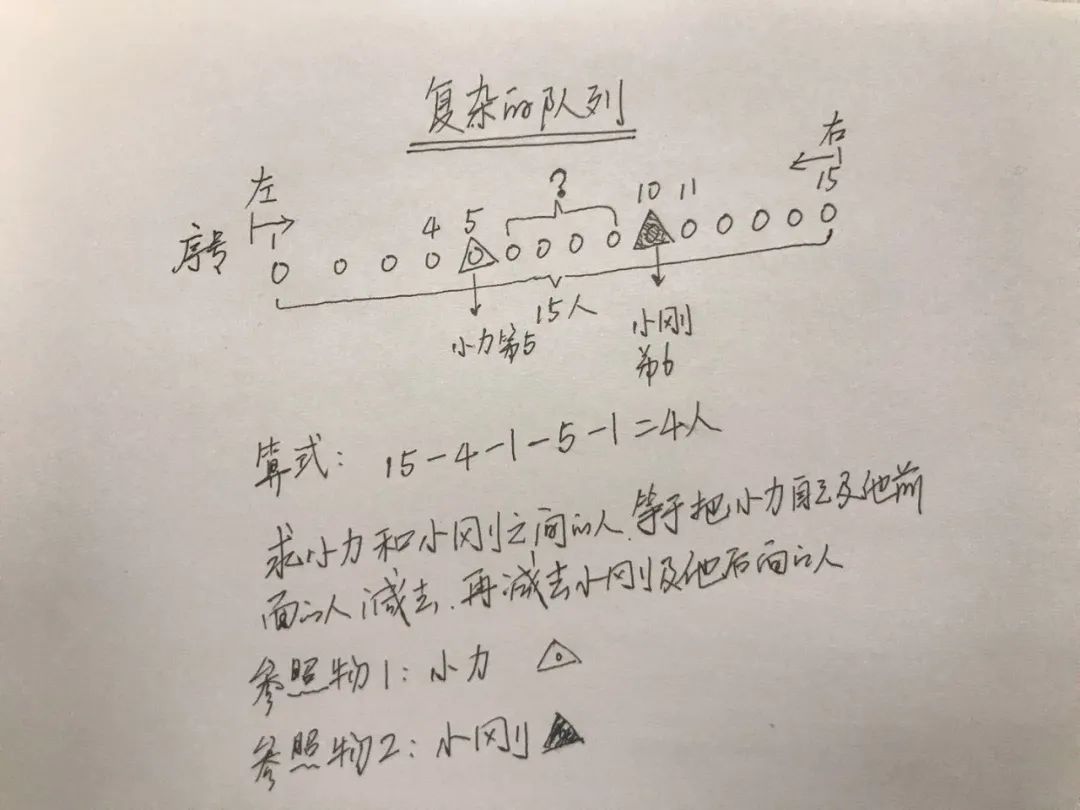 复杂的队列
左 右
? 10 11 15
序号 1 4 5
15人
小力第5 小刚
第6
算式： 15-4-1-5-1=4人
求小力和小刚之间的人，等于把小力自己及他前
面的人减去，再减去小刚及他后面的人
参照物1：小力
参照物2：小刚